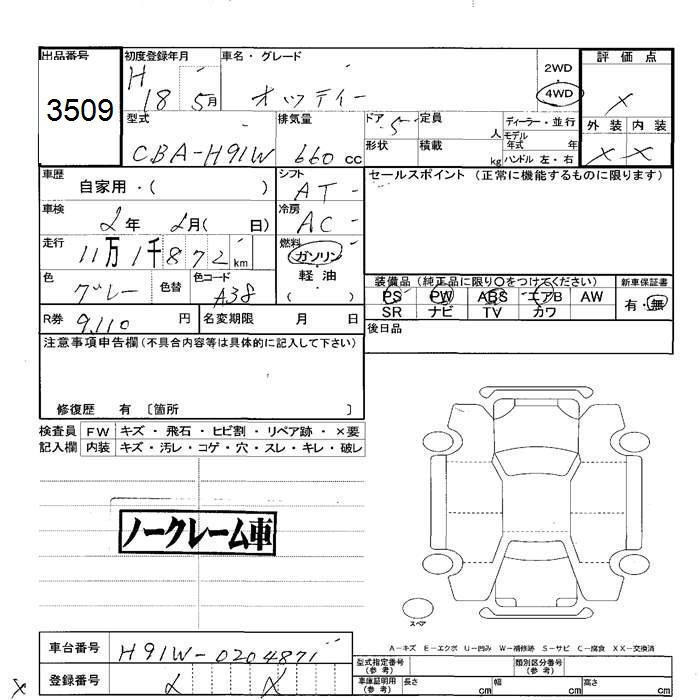 出品番号
3509
初度登録年月
H
18 5月
車名・グレード
オッティー
2WD
4WD
評価点
X
外装 内装
X X
型式
CBA-H91W
排気量
660 cc
ドア 5
形状
定員 人
積載 kg
ディーラー・並行
モデル年式 年
ハンドル 左・右
車歴
自家用・( )
シフト
AT
セールスポイント (正常に機能するものに限ります)
車検
2年 2月( 日)
冷房
AC
走行
11万1千872km
燃料
ガソリン
軽油
( )
色
グレー
色替
色コード
A38
装備品 (純正品に限り○をつけてください)
PS PW ABS エアB AW
SR ナビ TV カワ
新車保証書
有・無
R券 9,110 円
名変期限 月 日
後日品
注意事項申告欄(不具合内容等は具体的に記入して下さい)
修復歴 有 〔箇所 〕
検査員
記入欄
FW キズ・飛石・ヒビ割・リペア跡・×要
内装 キズ・汚レ・コゲ・穴・スレ・キレ・破レ
ノークレーム車
スペア
A－キズ E－エクボ U－凹み W－補修跡 S－サビ C－腐食 XX－交換済
車台番号
H91W-0204871
登録番号
型式指定番号
(参考)
類別区分番号
(参考)
車庫証明用
(参考)
長さ cm
幅 cm
高さ cm
X